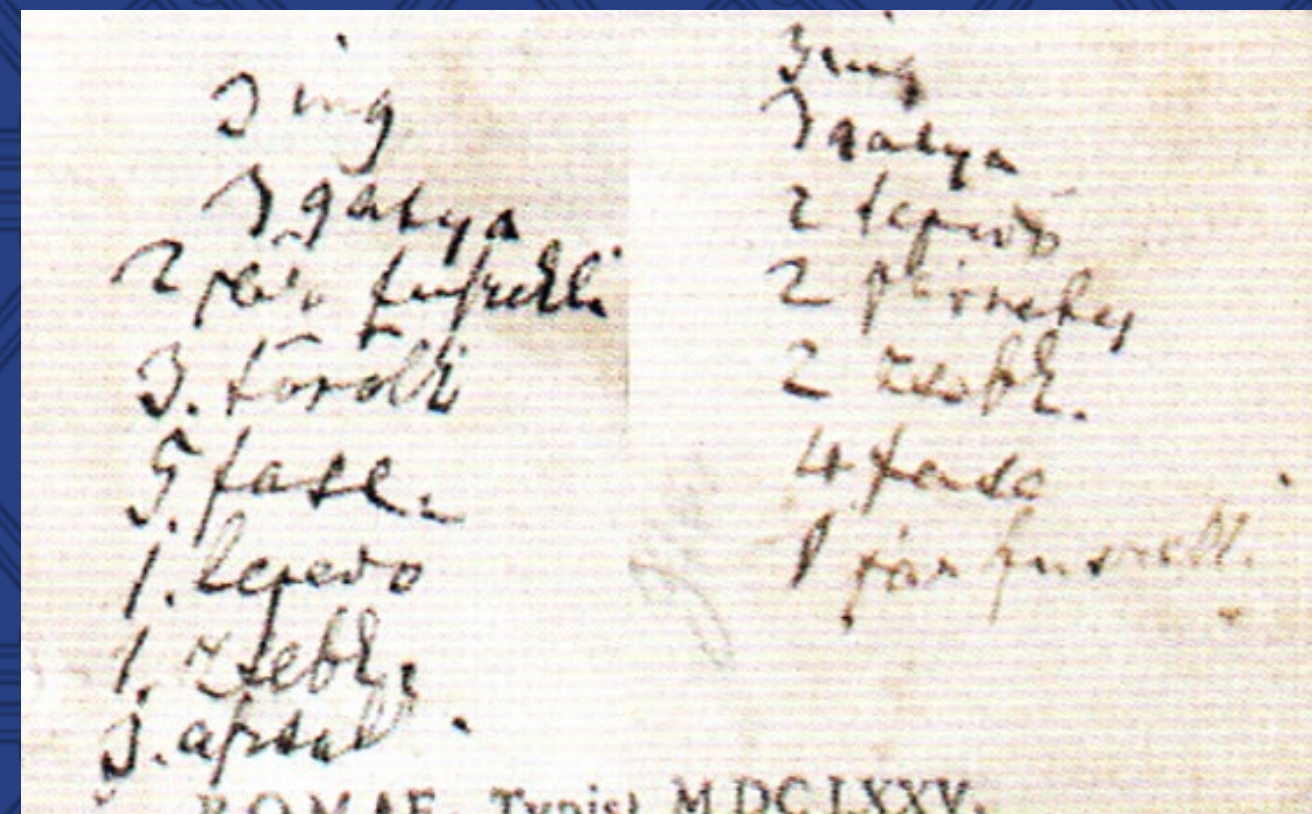 3 ing
3 gatya
2 pár fuszekli
3. törölk
5. fasl.
1. lepedo
1. zsebk.
3. asztal
3 ing
3 gatya
2 lepedö
2
2 zsebk.
4 fasl
1 pár fuszekl.
ROMAE, Typis, MDCLXXV.